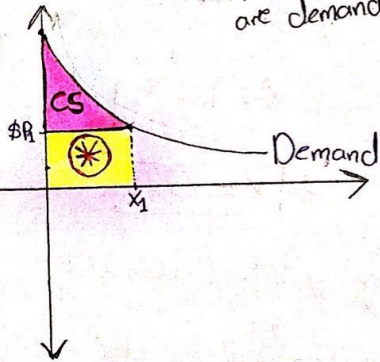 are demand
CS
$P1
Demand
x1